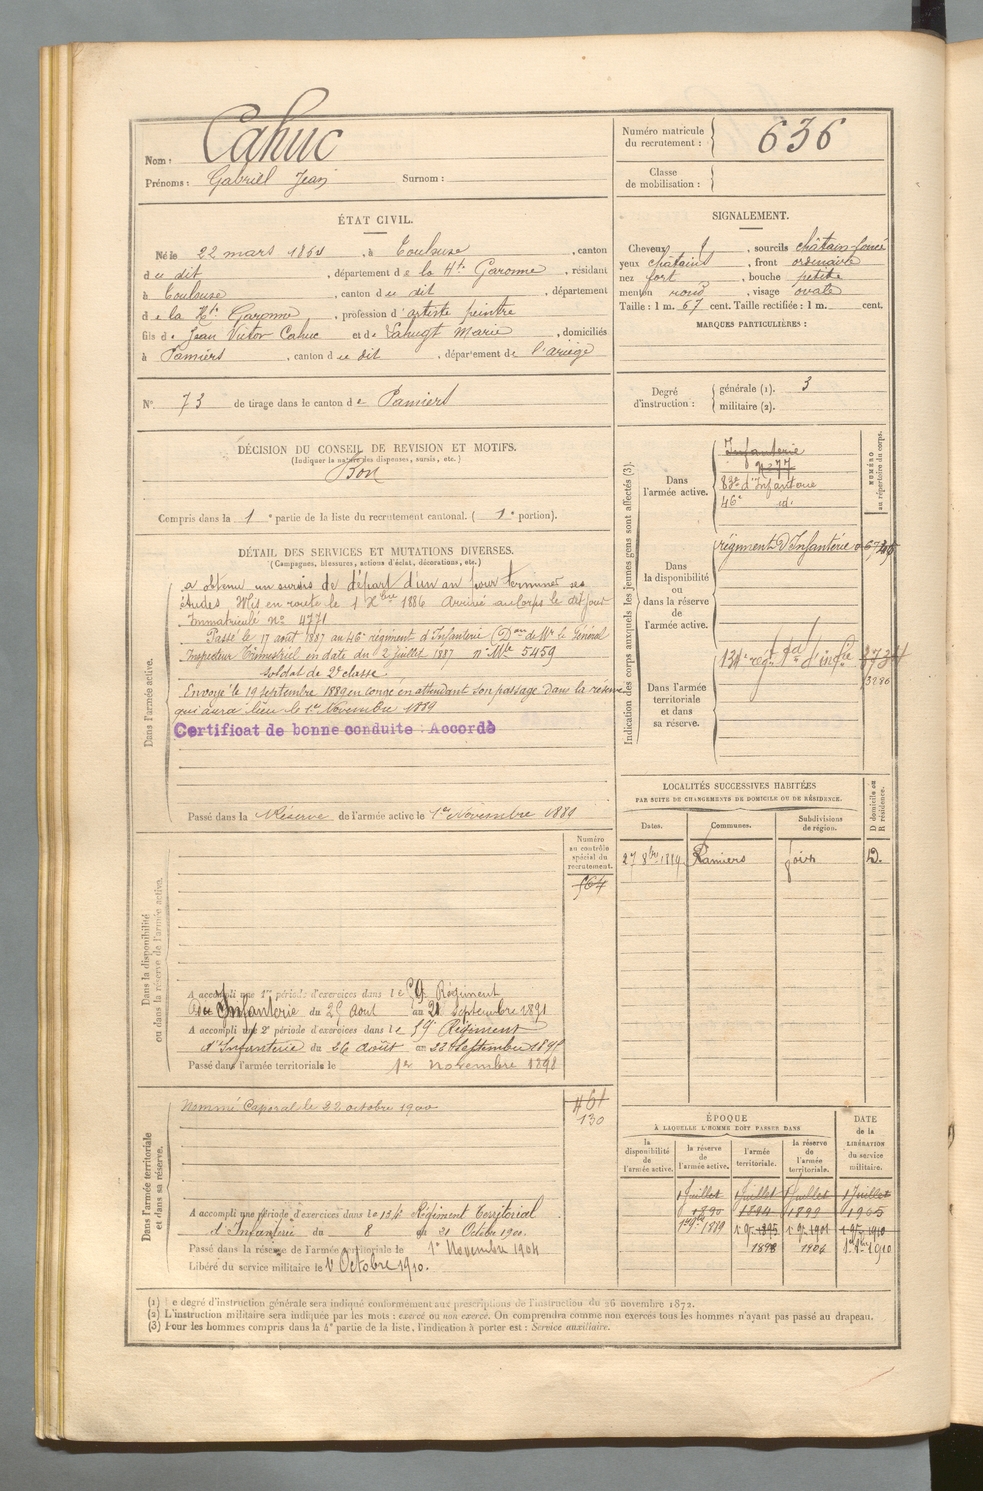 Nom : Cahuc
Prénoms : Gabriel Jean Surnom :
Numéro matricule du recrutement : 636
Classe de mobilisation :
ÉTAT CIVIL.
Né le 22 mars à Toulouse, canton
du dit, département de la Hte Garonne, résidant
à Toulouse, canton du dit, département
de la Hte Garonne, profession d'artiste peintre
fils de Jean Victor Cahuc et de Marie, domiciliés
à Pamiers, canton du dit, département de l'ariège
N° 73 de tirage dans le canton de Pamiers
SIGNALEMENT.
Cheveux, sourcils châtain-foncé
yeux châtains, front ordinaire
nez fort, bouche petite
menton rond, visage ovale
Taille : 1 m. 67 cent. Taille rectifiée : 1 m. cent.
MARQUES PARTICULIÈRES :
Degré d'instruction : générale (1). 3
militaire (2).
DÉCISION DU CONSEIL DE REVISION ET MOTIFS.
(Indiquer la nature des dispenses, sursis, etc.)
Bon
Compris dans la 1e partie de la liste du recrutement cantonal. ( 1e portion).
DÉTAIL DES SERVICES ET MUTATIONS DIVERSES.
(Campagnes, blessures, actions d'éclat, décorations, etc.)
Dans l'armée active.
a obtenu un sursis de départ d'un an pour terminer ses
études Mis en route le 1 Xbre 1886 Arrivé au corps le dit jour
Immatriculé n° 4771
Passé le 17 août 1887 au 46e régiment d'Infanterie (Don de Mr le Général
Inspecteur Trimestriel en date du 2 juillet 1887 n° Mle 5459
soldat de 2e classe
Envoyé le 19 septembre 1889 en congé en attendant son passage dans la réserve
qui aura lieu le 1er Novembre 1889
Certificat de bonne conduite : Accordé
Passé dans la Réserve de l'armée active le 1er Novembre 1889
Indication des corps auxquels les jeunes gens sont affectés (3).
NUMÉRO au répertoire du corps.
Dans l'armée active.
Infanterie
N° 77
83e d'Infanterie
46e id.
Dans la disponibilité ou dans la réserve de l'armée active.
régiment d'Infanterie
Dans l'armée territoriale et dans sa réserve.
134e régt td d'infie
3286
LOCALITÉS SUCCESSIVES HABITÉES
PAR SUITE DE CHANGEMENTS DE DOMICILE OU DE RÉSIDENCE.
Dates. Communes. Subdivisions de région. D domicile ou R résidence.
27 8bre 1889 Pamiers foix D.
Dans la disponibilité ou dans la réserve de l'armée active.
Numéro au contrôle spécial du recrutement.
564
A accompli une 1re période d'exercices dans le 59 Régiment
Infanterie du 25 Aout au 21 Septembre 1891
A accompli une 2e période d'exercices dans le 59e Régiment
d'Infanterie du 26 août au 22 Septembre
Passé dans l'armée territoriale le 1er novembre 1898
Dans l'armée territoriale et dans sa réserve.
461
130
Nommé Caporal le 22 octobre 1900
A accompli une période d'exercices dans le 134 Régiment Territorial
d'Infanterie du 8 au 21 Octobre 1900.
Passé dans la réserve de l'armée territoriale le 1er Novembre 1904
Libéré du service militaire le 1 Octobre 1910.
ÉPOQUE
À LAQUELLE L'HOMME DOIT PASSER DANS
DATE de la LIBÉRATION du service militaire.
la disponibilité de l'armée active. la réserve de l'armée active. l'armée territoriale. la réserve de l'armée territoriale.
1 Juillet 1 Juillet 1 Juillet 1 Juillet
1890 1894 1899 1905
1898 1904
(1) Le degré d'instruction générale sera indiqué conformément aux prescriptions de l'instruction du 26 novembre 1872.
(2) L'instruction militaire sera indiquée par les mots : exercé ou non exercé. On comprendra comme non exercés tous les hommes n'ayant pas passé au drapeau.
(3) Pour les hommes compris dans la 4e partie de la liste, l'indication à porter est : Service auxiliaire.